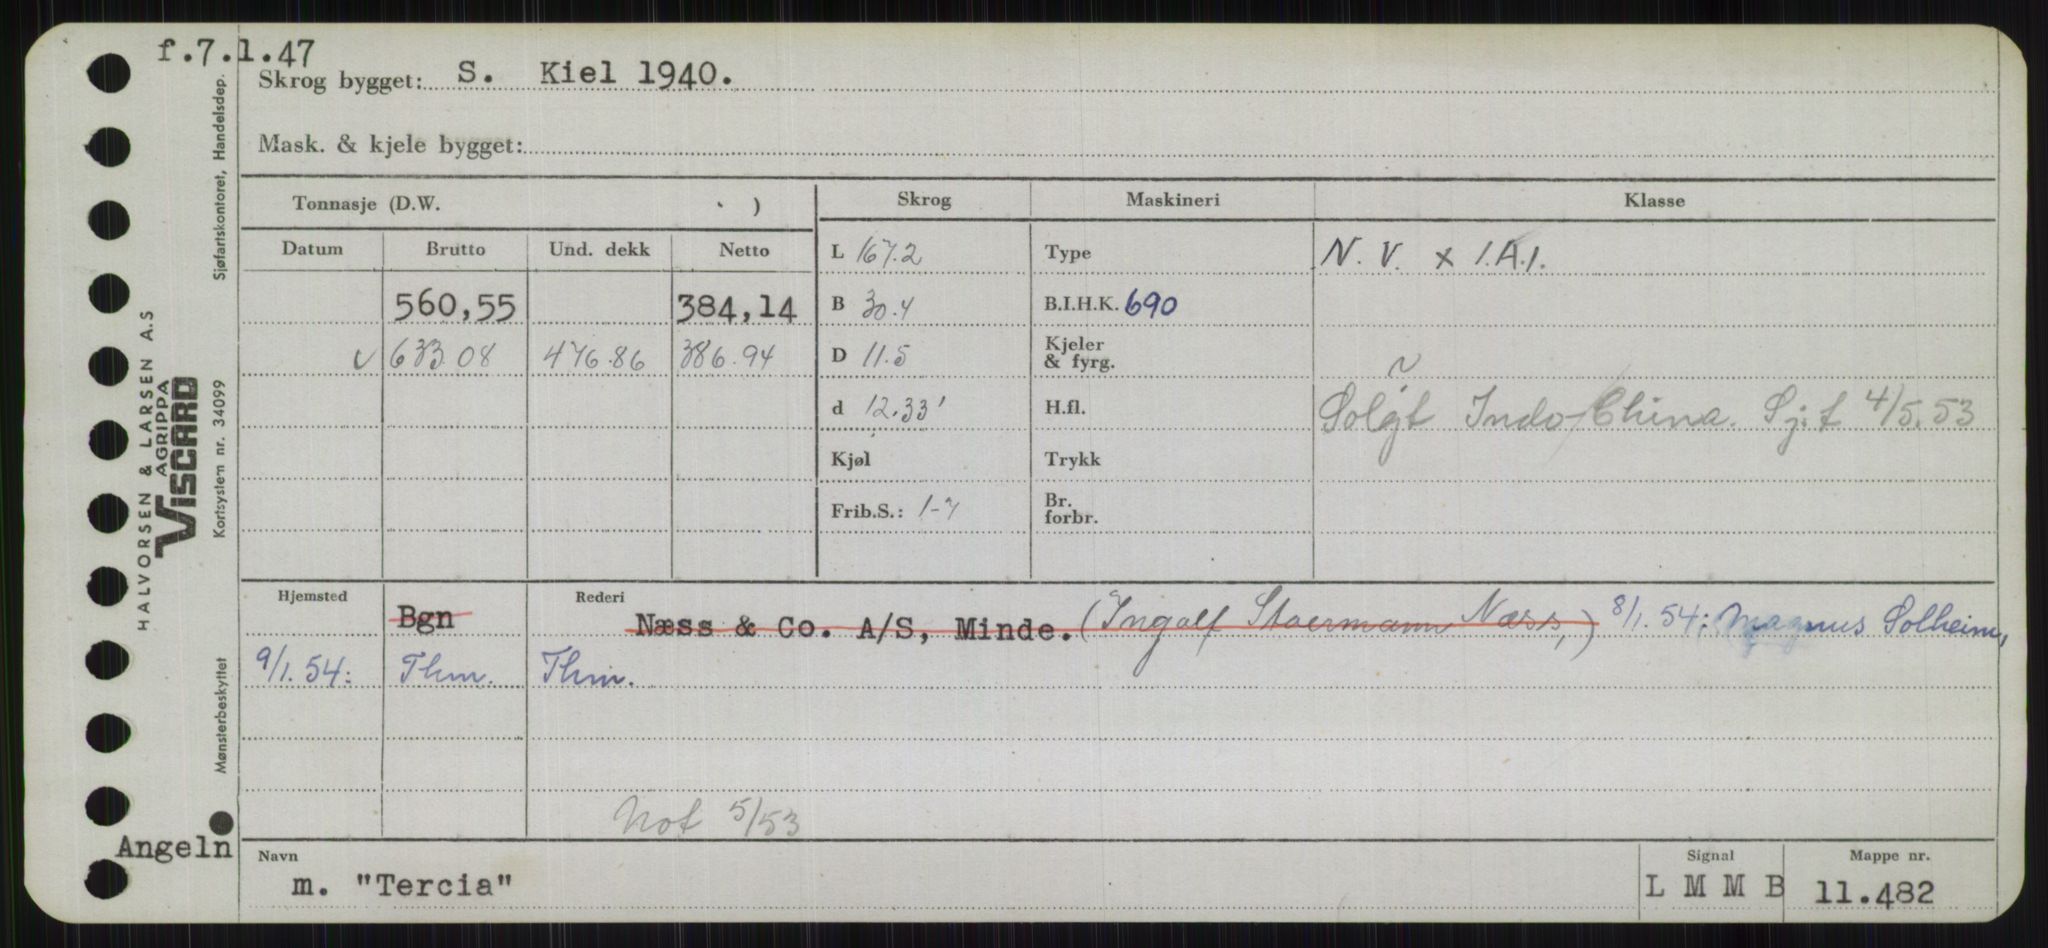 f.7.1.47
Skrog bygget: S. Kiel 1940.
Mask. & kjele bygget:
Tonnasje (D.W. )
Skrog
Maskineri
Klasse
Datum
Brutto
Und. dekk
Netto
L 167.2
Type
N. V. x 1.A.1.
560,55
384,14
B 30.4
B.I.H.K. 690
v 633.08 476.86 386.94
D 11.5
Kjeler
& fyrg.
d 12.33'
H.fl.
Solgt Indo-China. Sj.f 4/5.53
Kjøl
Trykk
Frib.S.: 1-7
Br.
forbr.
Hjemsted
Bgn
Rederi
Næss & Co. A/S, Minde. (Ingolf Stoermann Næss,) 8/1.54: Magnus Solheim,
9/1.54: Thm. Thm.
Not 5/53
Angeln
Navn
m. "Tercia"
Signal
L M M B
Mappe nr.
11.482
HALVORSEN & LARSEN A.S
AGRIPPA
VISCARD
Mønsterbeskyttet
Kortsystem nr. 34099
Sjøfartskontoret, Handelsdep.